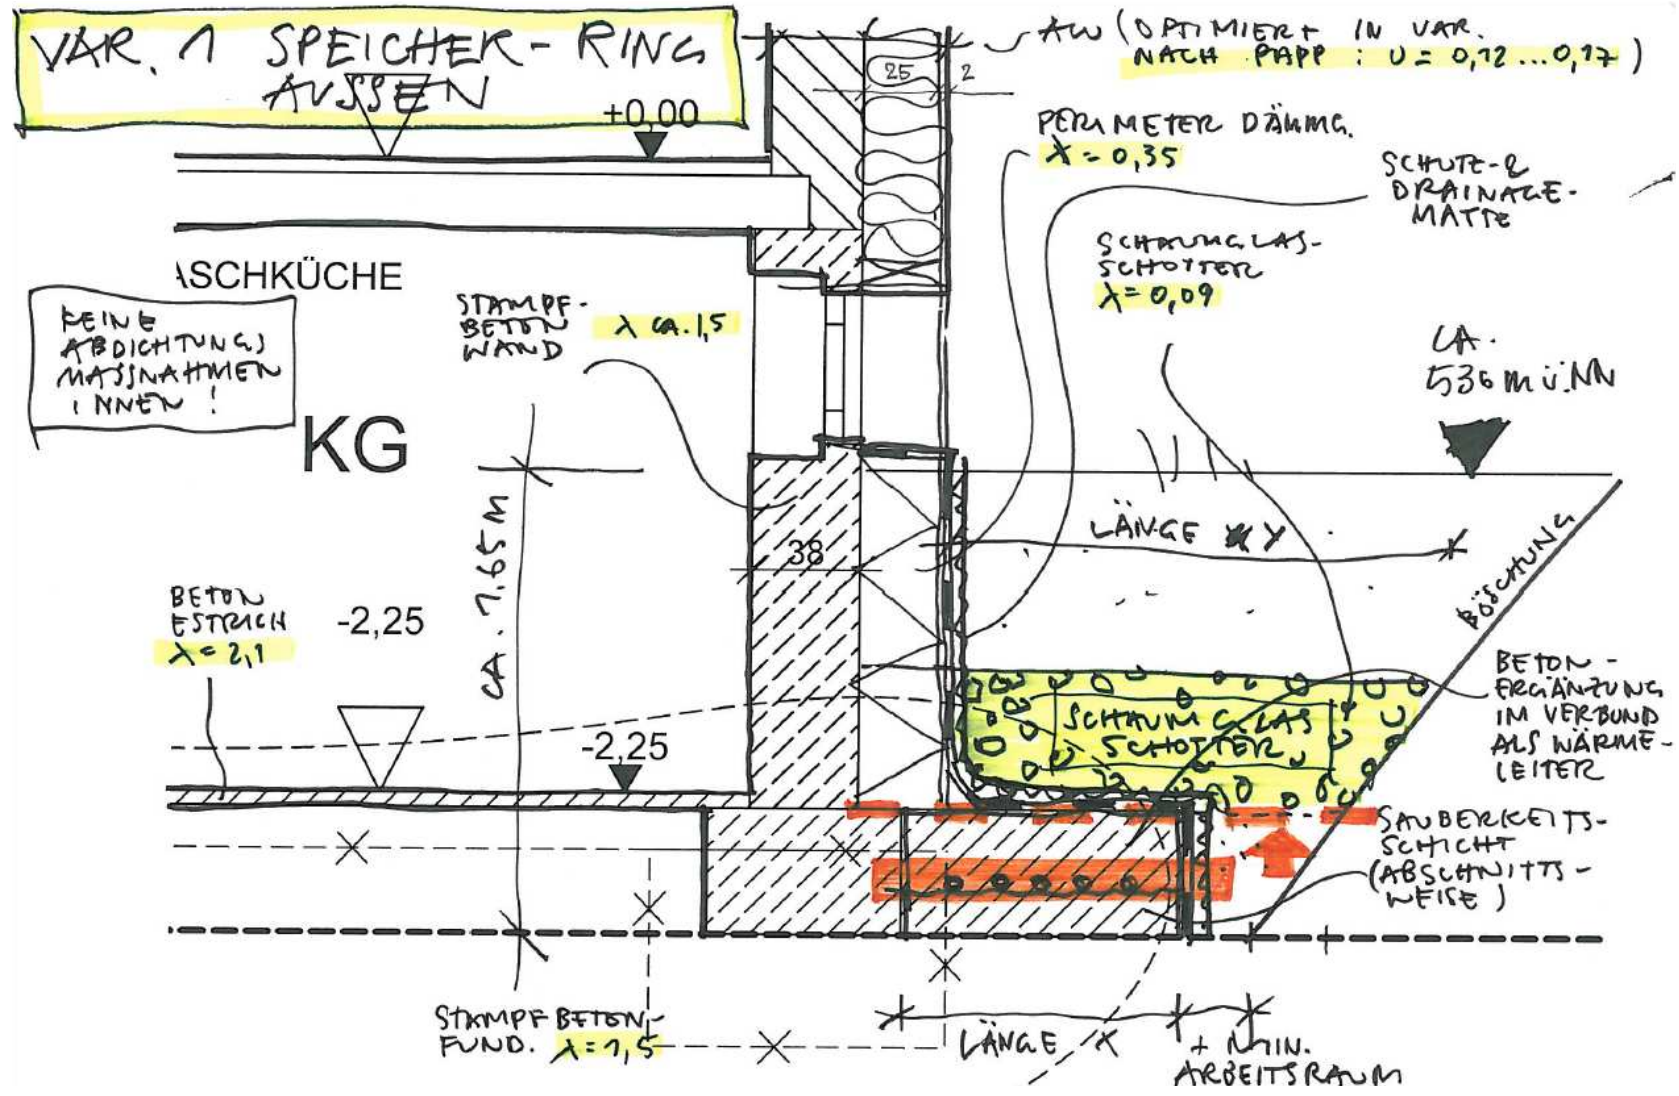 VAR. 1 SPEICHER-RING
AUSSEN
+0,00
25
2
AW (OPTIMIERT IN VAR.
NACH PAPP : U = 0,12...0,17)
PERIMETER DÄMMG.
λ = 0,35
SCHUTZ-&
DRAINAGE-
MATTE
SCHAUMGLAS-
SCHOTTER
λ = 0,09
ASCHKÜCHE
KEINE
ABDICHTUNGS
MASSNAHMEN
INNEN !
STAMPF-
BETON
WAND
λ CA. 1,5
KG
CA.
536 m ü.NN
CA. 1.65 M
38
LÄNGE Y
BÖSCHUNG
BETON
ESTRICH
λ = 2,1
-2,25
-2,25
SCHAUMGLAS
SCHOTTER
BETON-
ERGÄNZUNG
IM VERBUND
ALS WÄRME-
LEITER
SAUBERKEITS-
SCHICHT
(ABSCHNITTS-
WEISE)
STAMPFBETON-
FUND. λ = 1,5
LÄNGE X
+ MIN.
ARBEITSRAUM